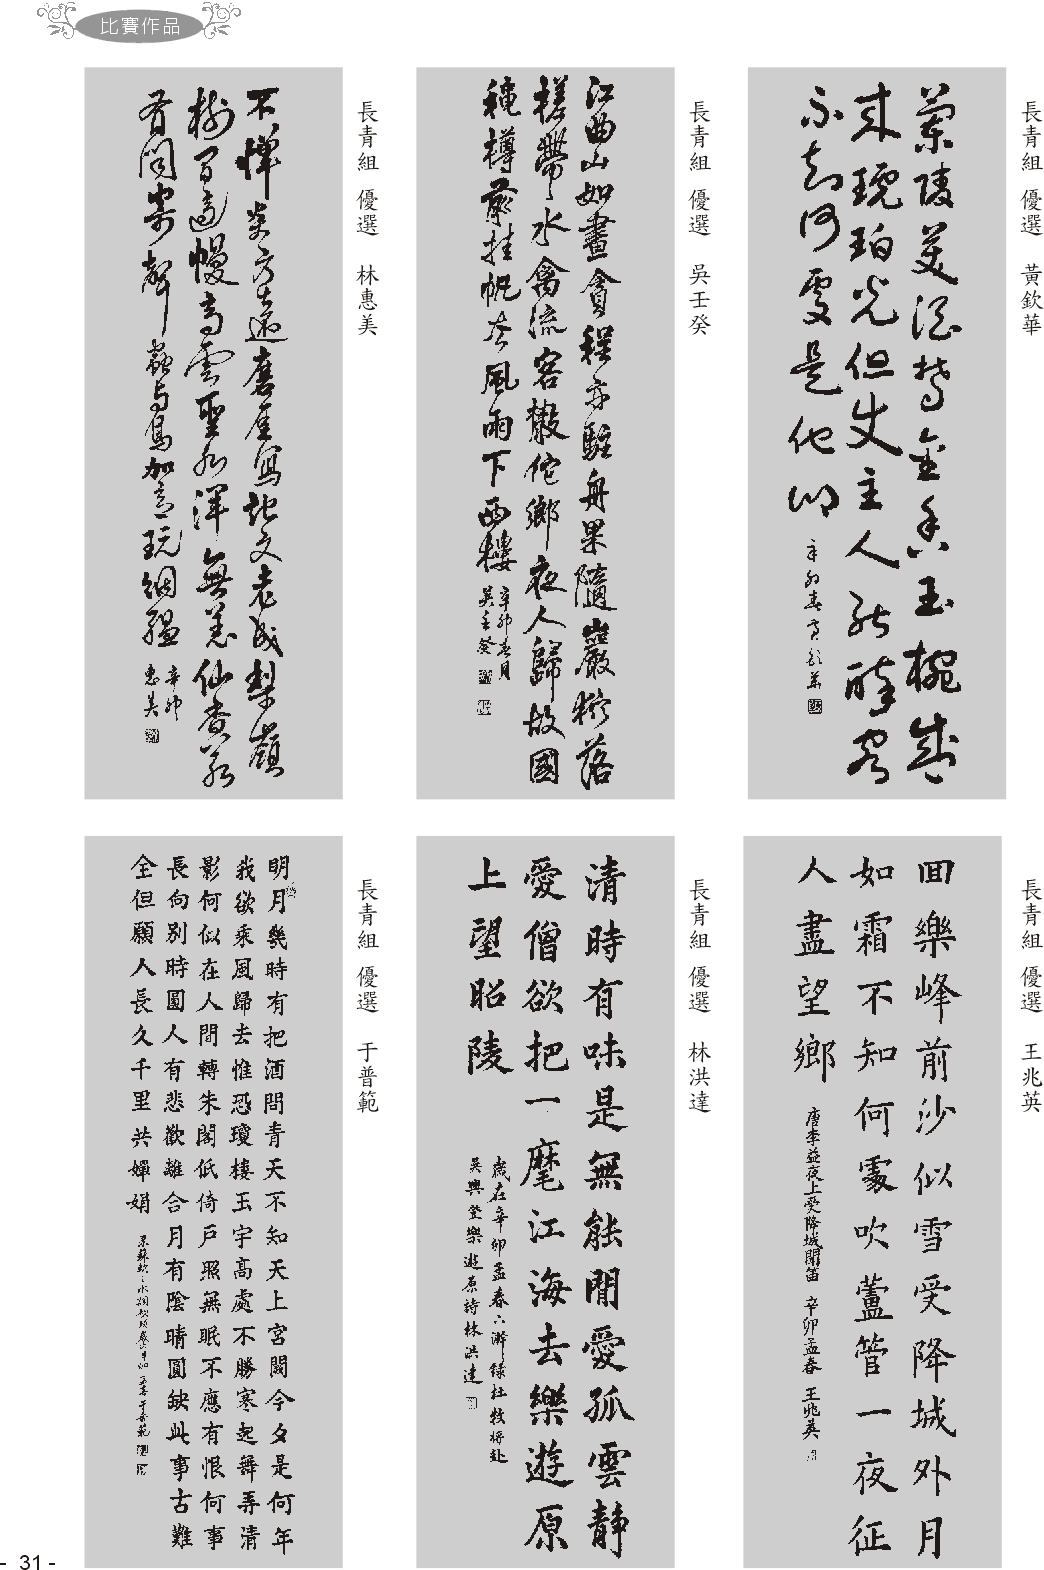 比賽作品
長青組 優選 黃欽華
蘭陵美酒鬱金香玉椀盛
來琥珀光但使主人能醉客
不知何處是他鄉
長青組 優選 吳壬癸
江曲山如畫貪程亦駐舟果隨巖狖落
槎帶水禽流客散他鄉夜人歸故國
秋樽前挂帆去風雨下西樓
辛卯春月
吳壬癸
長青組 優選 林惠美
不憚炎方遠磨崖寫地文老成梨嶺
樹
惠美
長青組 優選 王兆英
回樂峰前沙似雪受降城外月
如霜不知何處吹蘆管一夜征
人盡望鄉
唐李益夜上受降城聞笛 辛卯孟春 王兆英
長青組 優選 林洪達
清時有味是無能閒愛孤雲靜
愛僧欲把一麾江海去樂遊原
上望昭陵
歲在辛卯孟春之澣錄杜牧將赴
吳興登樂遊原詩林洪達
長青組 優選 于普範
明月幾時有把酒問青天不知天上宮闕今夕是何年
我欲乘風歸去惟恐瓊樓玉宇高處不勝寒起舞弄清
影何似在人間轉朱閣低倚戶照無眠不應有恨何事
長向別時圓人有悲歡離合月有陰晴圓缺此事古難
全但願人長久千里共嬋娟
- 31 -